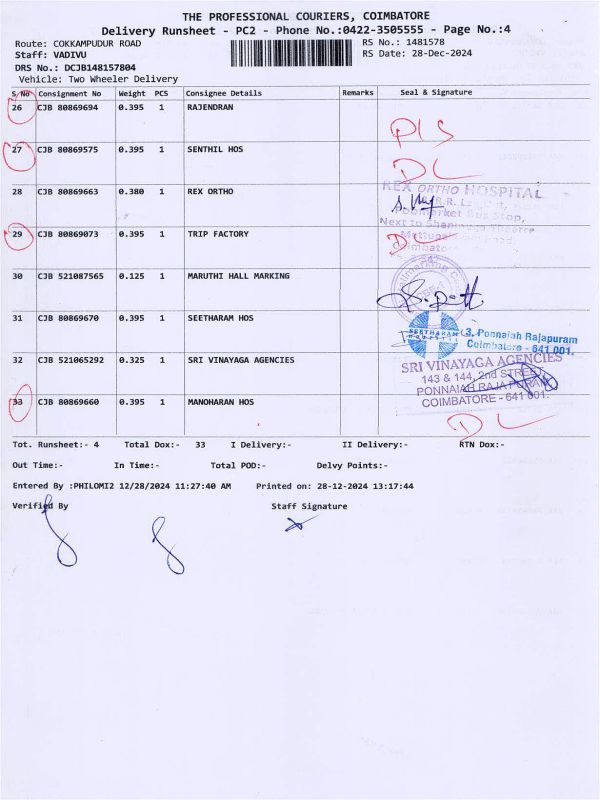 THE PROFESSIONAL COURIERS, COIMBATORE
Delivery Runsheet - PC2 - Phone No.:0422-3505555 - Page No.:4
Route: COKKAMPUDUR ROAD RS No.: 1481578
Staff: VADIVU RS Date: 28-Dec-2024
DRS No.: DCJB148157804
Vehicle: Two Wheeler Delivery
S No Consignment No Weight PCS Consignee Details Remarks Seal & Signature
26 CJB 80869694 0.395 1 RAJENDRAN
27 CJB 80869575 0.395 1 SENTHIL HOS
DL
28 CJB 80869663 0.380 1 REX ORTHO
REX ORTHO HOSPITAL
Bus Stop,
Next to
29 CJB 80869073 0.395 1 TRIP FACTORY
DL
30 CJB 521087565 0.125 1 MARUTHI HALL MARKING
31 CJB 80869670 0.395 1 SEETHARAM HOS
SEETHARAM HOSPITAL
3, Ponnaiah Rajapuram
Coimbatore - 641 001.
32 CJB 521065292 0.325 1 SRI VINAYAGA AGENCIES
SRI VINAYAGA AGENCIES
143 & 144, 2nd STREET
PONNAIAH RAJA PURAM
COIMBATORE - 641 001.
33 CJB 80869660 0.395 1 MANOHARAN HOS
DL
Tot. Runsheet:- 4 Total Dox:- 33 I Delivery:- II Delivery:- RTN Dox:-
Out Time:- In Time:- Total POD:- Delvy Points:-
Entered By :PHILOMI2 12/28/2024 11:27:40 AM Printed on: 28-12-2024 13:17:44
Verified By Staff Signature